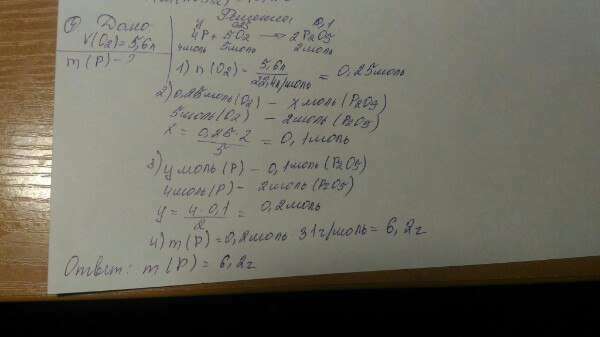 ④ Дано:
V(O2)=5,6л
m(P)-?
Решение:
y 0,25 0,1
4P + 5O2 → 2P2O5
4моль 5моль 2моль
1) n(O2) = 5,6л / 22,4л/моль = 0,25моль
2) 0,25моль(O2) - xмоль(P2O5)
5моль(O2) - 2моль(P2O5)
x = 0,25·2 / 5 = 0,1моль
3) yмоль(P) - 0,1моль(P2O5)
4моль(P) - 2моль(P2O5)
y = 4·0,1 / 2 = 0,2моль
4) m(P) = 0,2моль·31г/моль = 6,2г
Ответ: m(P) = 6,2г